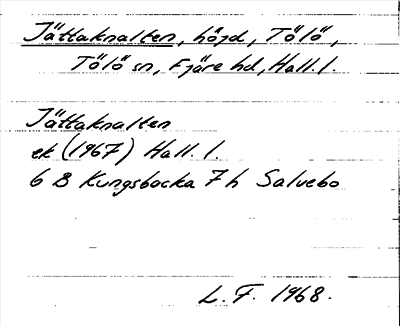 Jättaknalten, höjd, Tölö,
Tölö sn, Fjäre hd, Hall. l.
Jättaknalten
ek (1967) Hall. l.
6 B Kungsbacka 7 h Salvebo
L. F. 1968.